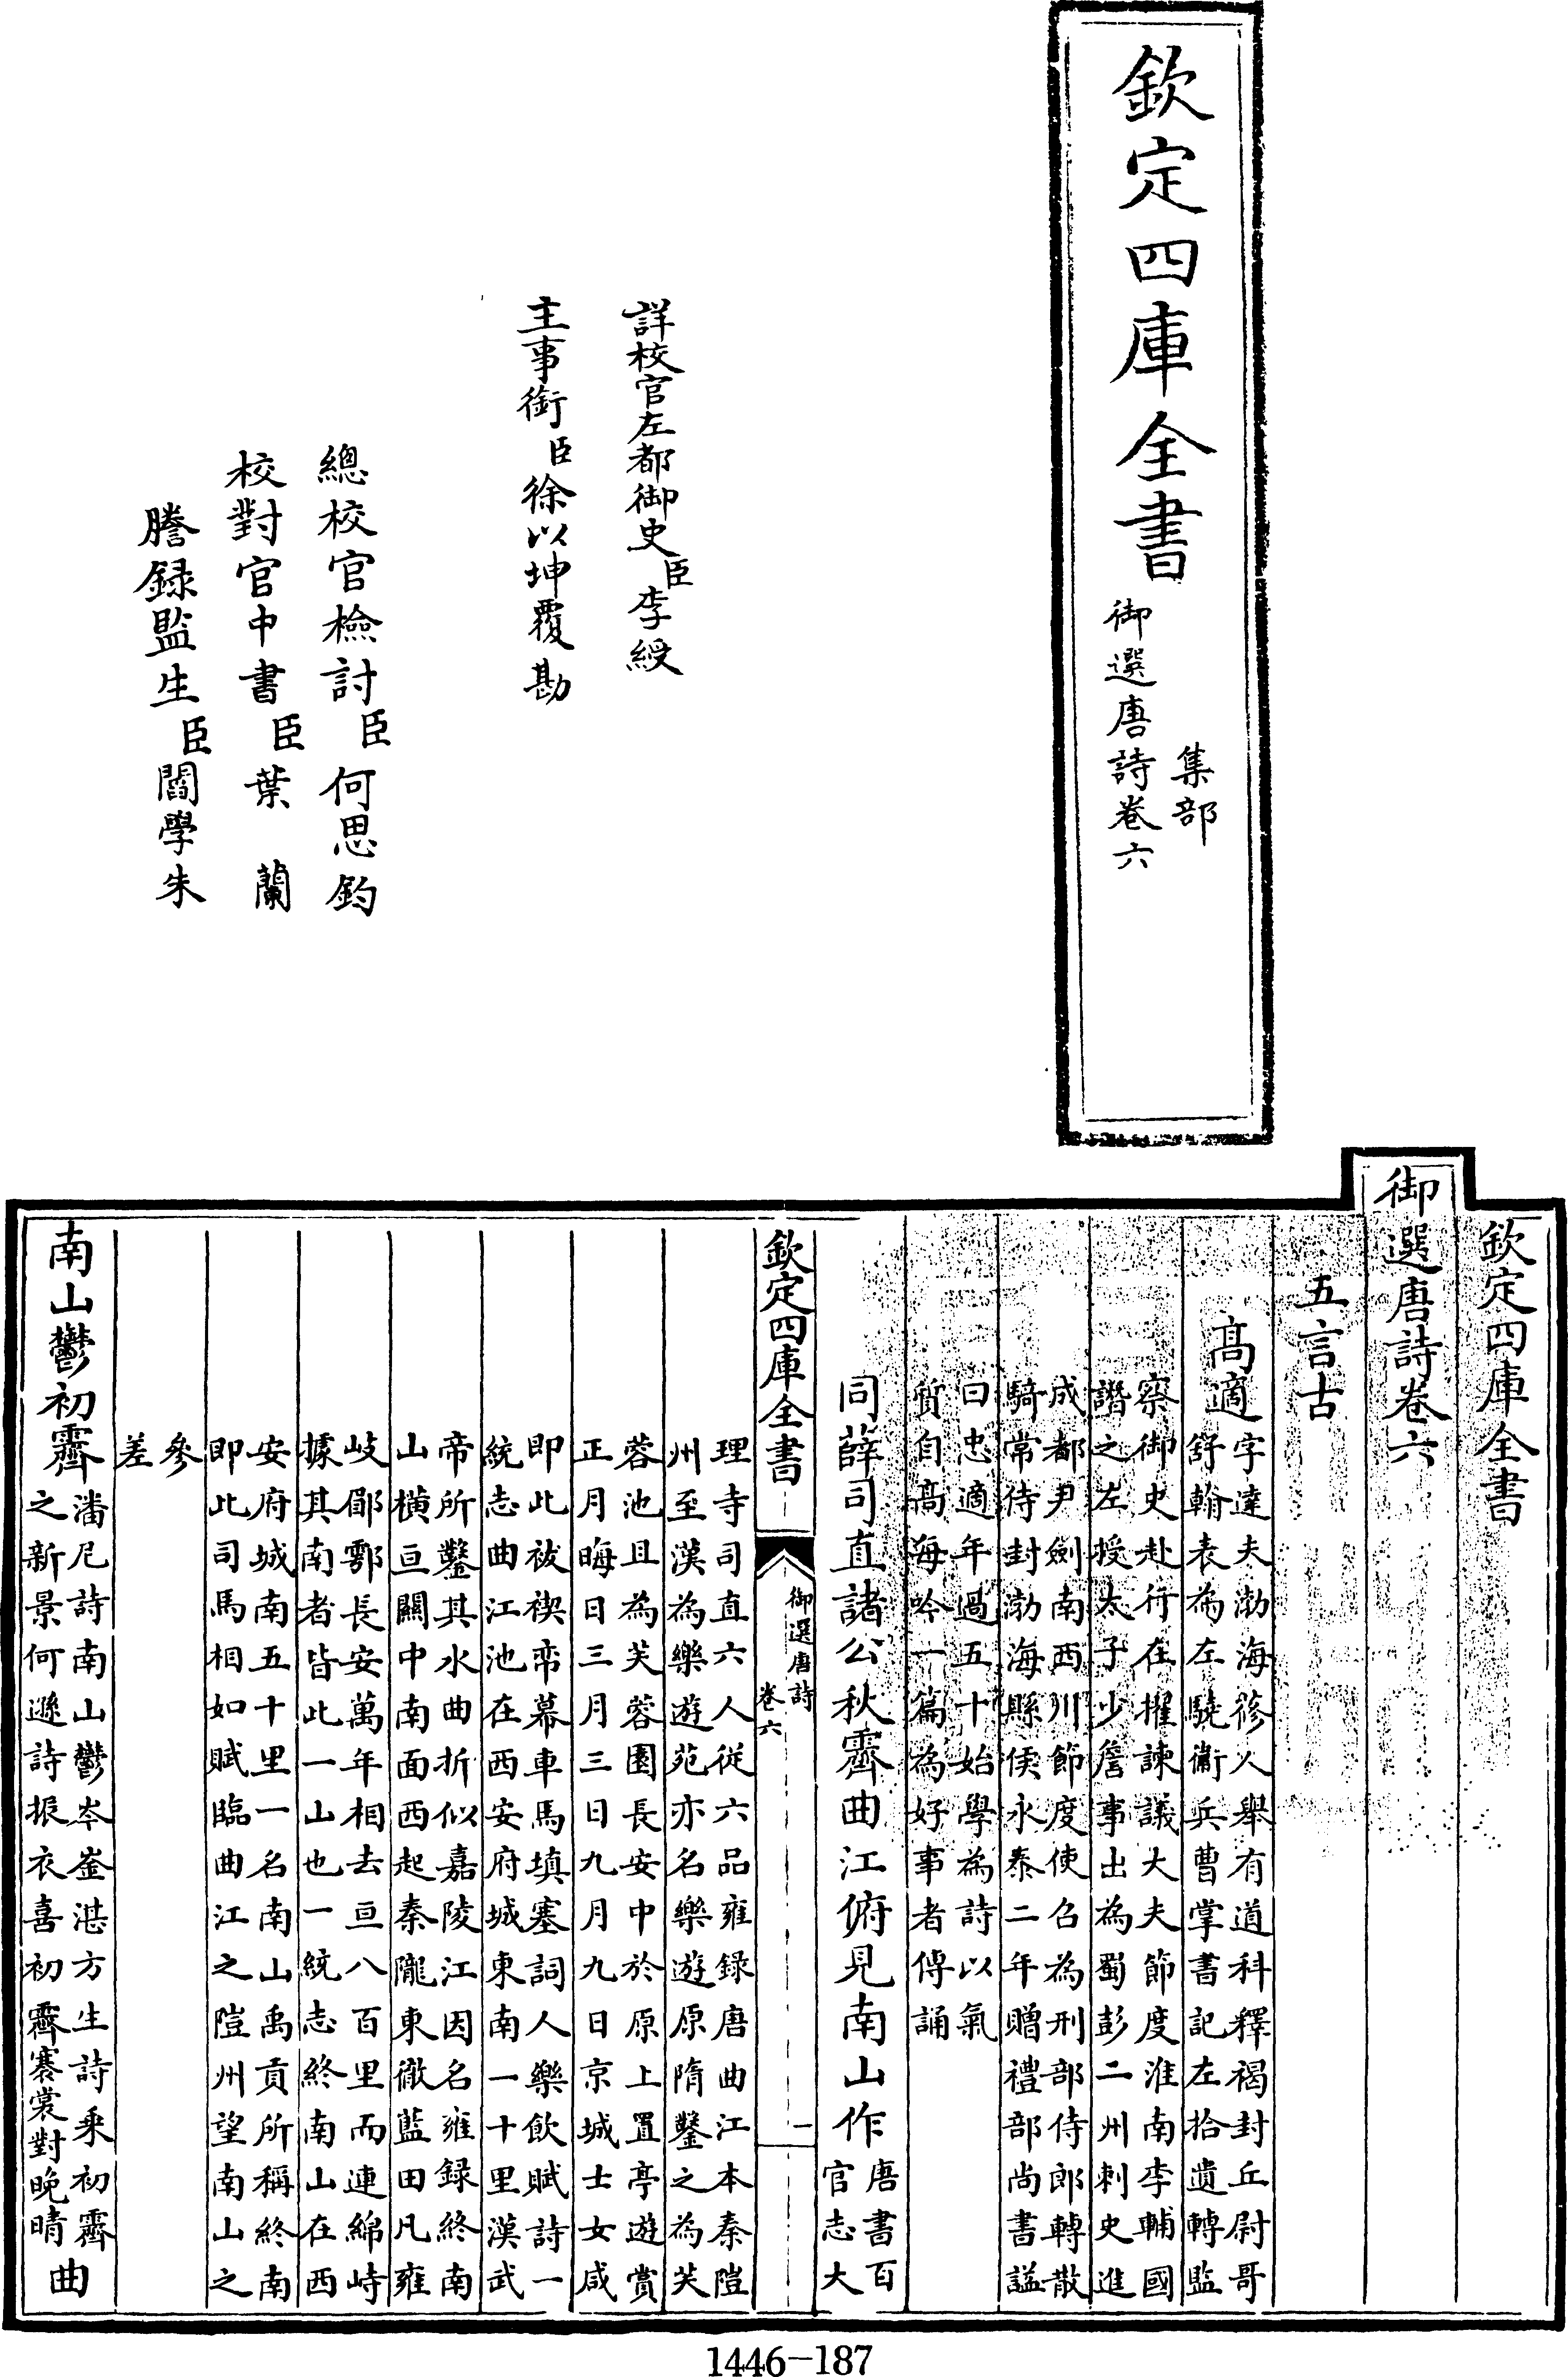 欽定四庫全書
集部
御選唐詩卷六
詳校官左都御史臣李綬
主事銜臣徐以坤覆勘
總校官檢討臣何思鈞
校對官中書臣葉蘭
謄録監生臣閻學朱
欽定四庫全書
御選唐詩卷六
五言古
高適
字達夫渤海蓚人舉有道科釋褐封丘尉哥
舒翰表為左驍衛兵曹掌書記左拾遺轉監
察御史赴行在擢諫議大夫節度淮南李輔國
譖之左授太子少詹事出為蜀彭二州刺史進
成都尹劍南西川節度使召為刑部侍郎轉散
騎常侍封渤海縣侯永泰二年贈禮部尚書謚
曰忠適年過五十始學為詩以氣
質自高海吟一篇為好事者傳誦
同薛司直諸公秋霽曲江俯見南山作
唐書百
官志大
欽定四庫全書
御選唐詩
卷六
一
理寺司直六人從六品雍録唐曲江本秦隑
州至漢為樂遊苑亦名樂遊原隋鑿之為芙
蓉池且為芙蓉園長安中於原上置亭遊賞
正月晦日三月三日九月九日京城士女咸
即此祓禊帟幕車馬填塞詞人樂飲賦詩一
統志曲江池在西安府城東南一十里漢武
帝所鑿其水曲折似嘉陵江因名雍録終南
山橫亘關中南面西起秦隴東徹藍田凡雍
岐郿鄠長安萬年相去亘八百里而連綿峙
據其南者皆此一山也一統志終南山在西
安府城南五十里一名南山禹貢所稱終南
即此司馬相如賦臨曲江之隑州望南山之
參
差
南山鬱初霽
潘尼詩南山鬱岑崟湛方生詩乘初霽
之新景何遜詩振衣喜初霽褰裳對晚晴
曲
1446-187